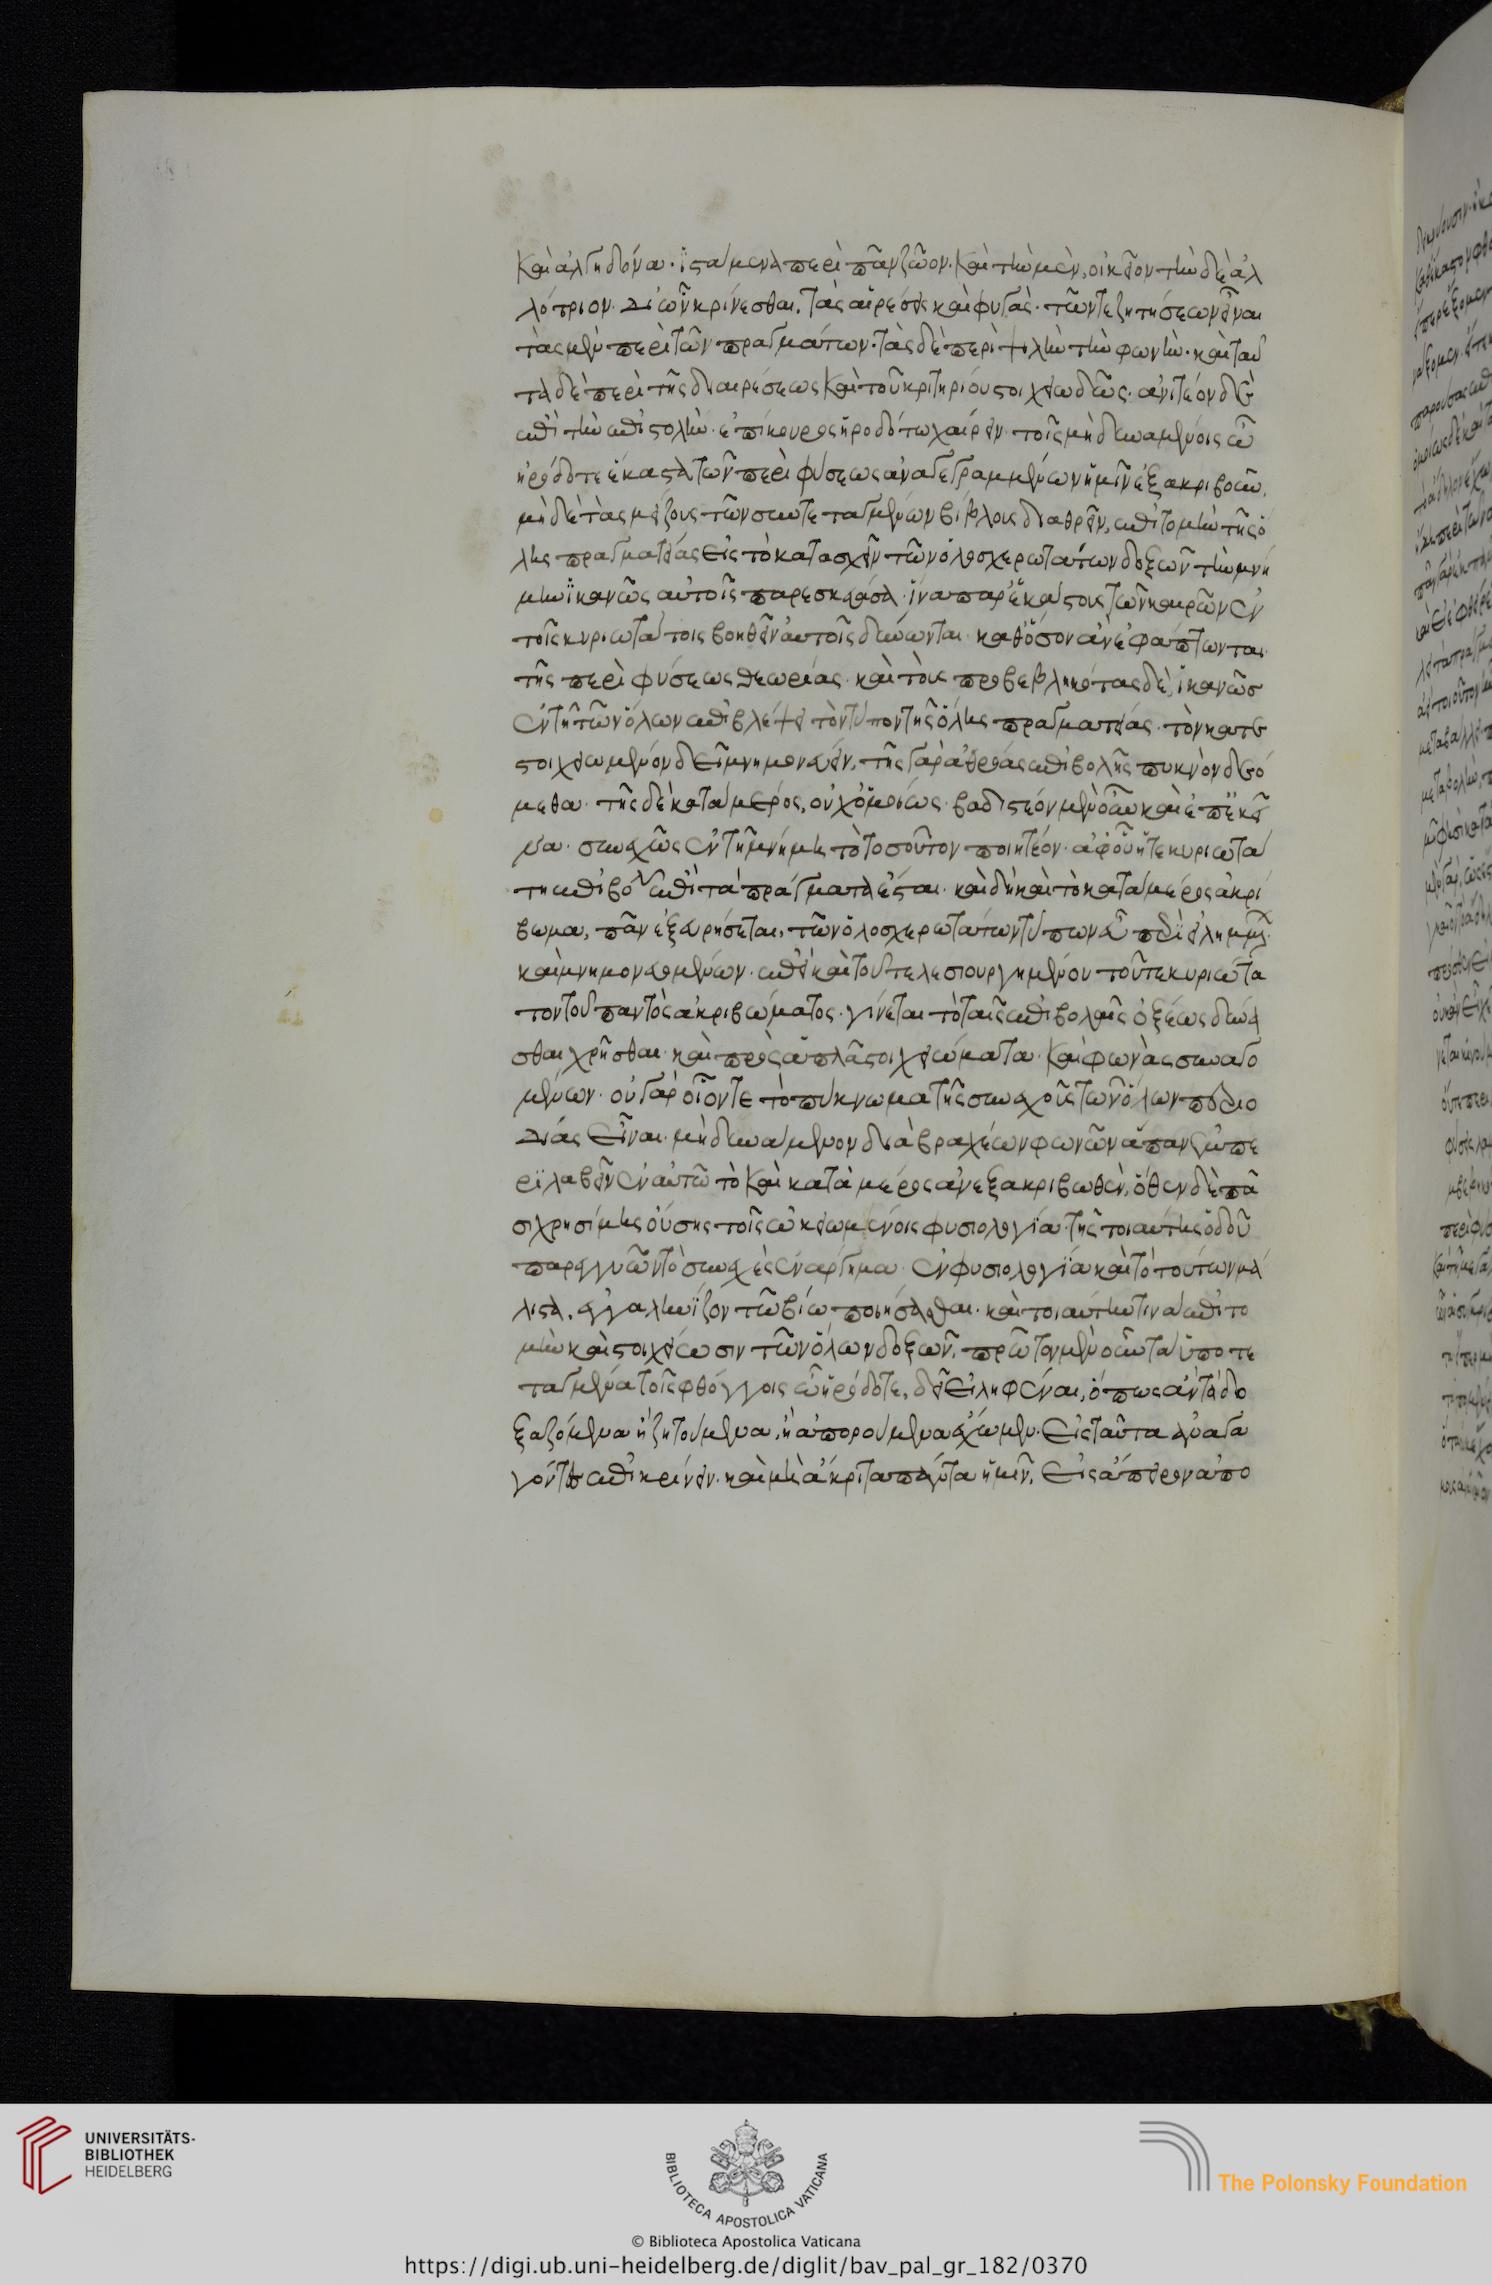 καὶ ἀλγηδόνα· ἱστάμενα περὶ πᾶν ζῶον· καὶ τὴν μὲν, οἰκεῖον τὴν δὲ ἀλ
λότριον· δι ὧν κρίνεσθαι. τὰς αἱρέσεις καὶ φυγὰς· τῶν τε ζητήσεων εἶναι
τὰς μὲν περὶ τῶν πραγμάτων· τὰς δὲ περὶ ψιλὴν τὴν φωνὴν· καὶ ταῦ
τὰ δὲ περὶ τῆς διαιρέσεως καὶ τοῦ κριτηρίου στοιχειωδῶς· ἀνιτέον δὲ
ἐπὶ τὴν ἐπιστολὴν· ἐπίκουρος ἡροδότω χαίρειν· τοῖς μὴ δυναμένοις ὦ
ἡρόδοτε ἕκαστα τῶν περὶ φύσεως ἀναγεγραμμένων ἡμῖν ἐξακριβοῦν,
μηδὲ τὰς μείζους τῶν συντεταγμένων βίβλους διαθρεῖν, ἐπιτομὴν τῆς ὅ
λης πραγματείας εἰς τὸ κατασχεῖν τῶν ὁλοσχερωτάτων δοξῶν τὴν μνή
μην ἱκανῶς αὐτοῖς παρεσκεύασα· ἵνα παρ ἑκάστους τῶν καιρῶν ἐν
τοῖς κυριωτάτοις βοηθεῖν αὐτοῖς δύνωνται· καθ ὅσον ἂν ἐφάπτωνται
τῆς περὶ φύσεως θεωρίας· καὶ τοὺς προβεβληκότας δὲ, ἱκανῶσ
ἐν τῆ τῶν ὅλων ἐπιβλέψει τὸν τύπον τῆς ὅλης πραγματείας· τὸν κατε
στοιχειωμένον δεῖ μνημονεύειν, τῆς γὰρ ἀθρόας ἐπιβολῆς πυκνὸν δεό
μεθα· τῆς δὲ κατὰ μέρος, οὐχ ὁμοίως· βαδιστέον μὲν οὖν καὶ ἐπ ἐκεῖ
να· συνεχῶς ἐν τῆ μνήμη τὸ τοσοῦτον ποιητέον· ἀφ οὗ ἥ τε κυριωτά
τη ἐπιβολ ἐπὶ τὰ πράγματα ἔσται· καὶ δὴ καὶ τὸ κατὰ μέρος ἀκρί
βωμα, πᾶν ἐξευρήσεται, τῶν ὁλοσχερωτάτων τύπων εὖ περιειλημμέν
καὶ μνημονευομένων· ἐπεὶ καὶ τοῦ τελεσιουργημένου τοῦτε κυριώτα
τον τοῦ παντὸς ἀκριβώματος· γίνεται τὸ ταῖς ἐπιβολαῖς ὀξέως δύνα
σθαι χρῆσθαι· καὶ πρὸς ἁπλᾶ στοιχειώματα· καὶ φωνὰς συναγο
μένων· οὐ γὰρ οἷόντε τὸ πύκνωμα τῆς συνεχοῦς τῶν ὅλων περιο
δίας εἶναι· μὴ δυνάμενον διὰ βραχέων φωνῶν ἅπαν ἐμπε
ριλαβεῖν ἐν αὐτῶ τὸ καὶ κατὰ μέρος ἂν ἐξακριβωθὲν, ὅθεν δὴ πᾶ
σι χρησίμης οὔσης τοῖς ὠκειωμένοις φυσιολογία· τῆς τοιαύτης ὁδοῦ
παρεγγυῶν τὸ συνεχὲς ἐνάργημα· ἐν φυσιολογία καὶ τὸ τούτων μά
λιστα, ἐγγαληνίζον τῶ βίω ποιήσασθαι· καὶ τοιαύτην τινα ἐπιτο
μὴν καὶ στοιχείωσιν τῶν ὅλων δοξῶν, πρῶτον μὲν οὖν τὰ ὑποτε
ταγμένα τοῖς φθόγγοις ὦ ἡρόδοτε, δεῖ εἰληφέναι, ὅπως ἂν τὰ δο
ξαζόμενα ἢ ζητούμενα, ἢ ἀπορούμενα ἔχωμεν· εἰς ταῦτα ἀναγα
γόντες ἐπικρίνειν· καὶ μὴ ἄκριτα πάντα ἡμῖν, εἰς ἄπειρον ἀπο
UNIVERSITÄTS-
BIBLIOTHEK
HEIDELBERG
BIBLIOTECA APOSTOLICA VATICANA
The Polonsky Foundation
© Biblioteca Apostolica Vaticana
https://digi.ub.uni-heidelberg.de/diglit/bav_pal_gr_182/0370